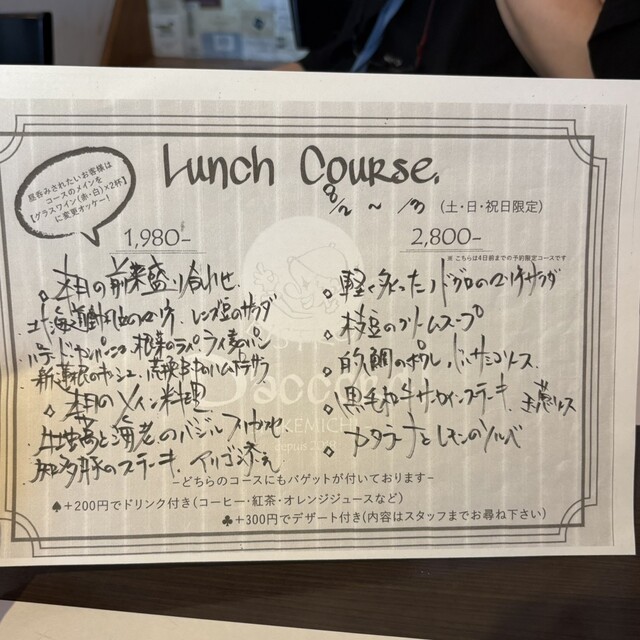 Lunch Course.
昼呑みされたいお客様は
コースのメインを
【グラスワイン(赤・白)×2杯】
に変更オッケー!
8/2 ~ /3 (土・日・祝日限定)
1,980-
◇ 本日の前菜盛り合わせ
北海道 レンズ豆のサラダ
パテ・ド・カンパーニュ 根菜のラペ ライ麦パン
◇ 本日のメイン料理
と海老のバジル
知多豚のステーキ、アリゴ添え
2,800-
※こちらは4日前までの予約限定コースです
◇ 軽く炙ったノドグロの サラダ
◇ 枝豆のクリームスープ
◇ 真鯛のポワレ バルサミコソース
◇ 黒毛和牛サーロインステーキ 玉葱ソース
◇ カタラーナとレモンのソルベ
D'accord
KEMICHI
depuis
-どちらのコースにもバゲットが付いております-
♠+200円でドリンク付き(コーヒー・紅茶・オレンジジュースなど)
♣+300円でデザート付き(内容はスタッフまでお尋ね下さい)